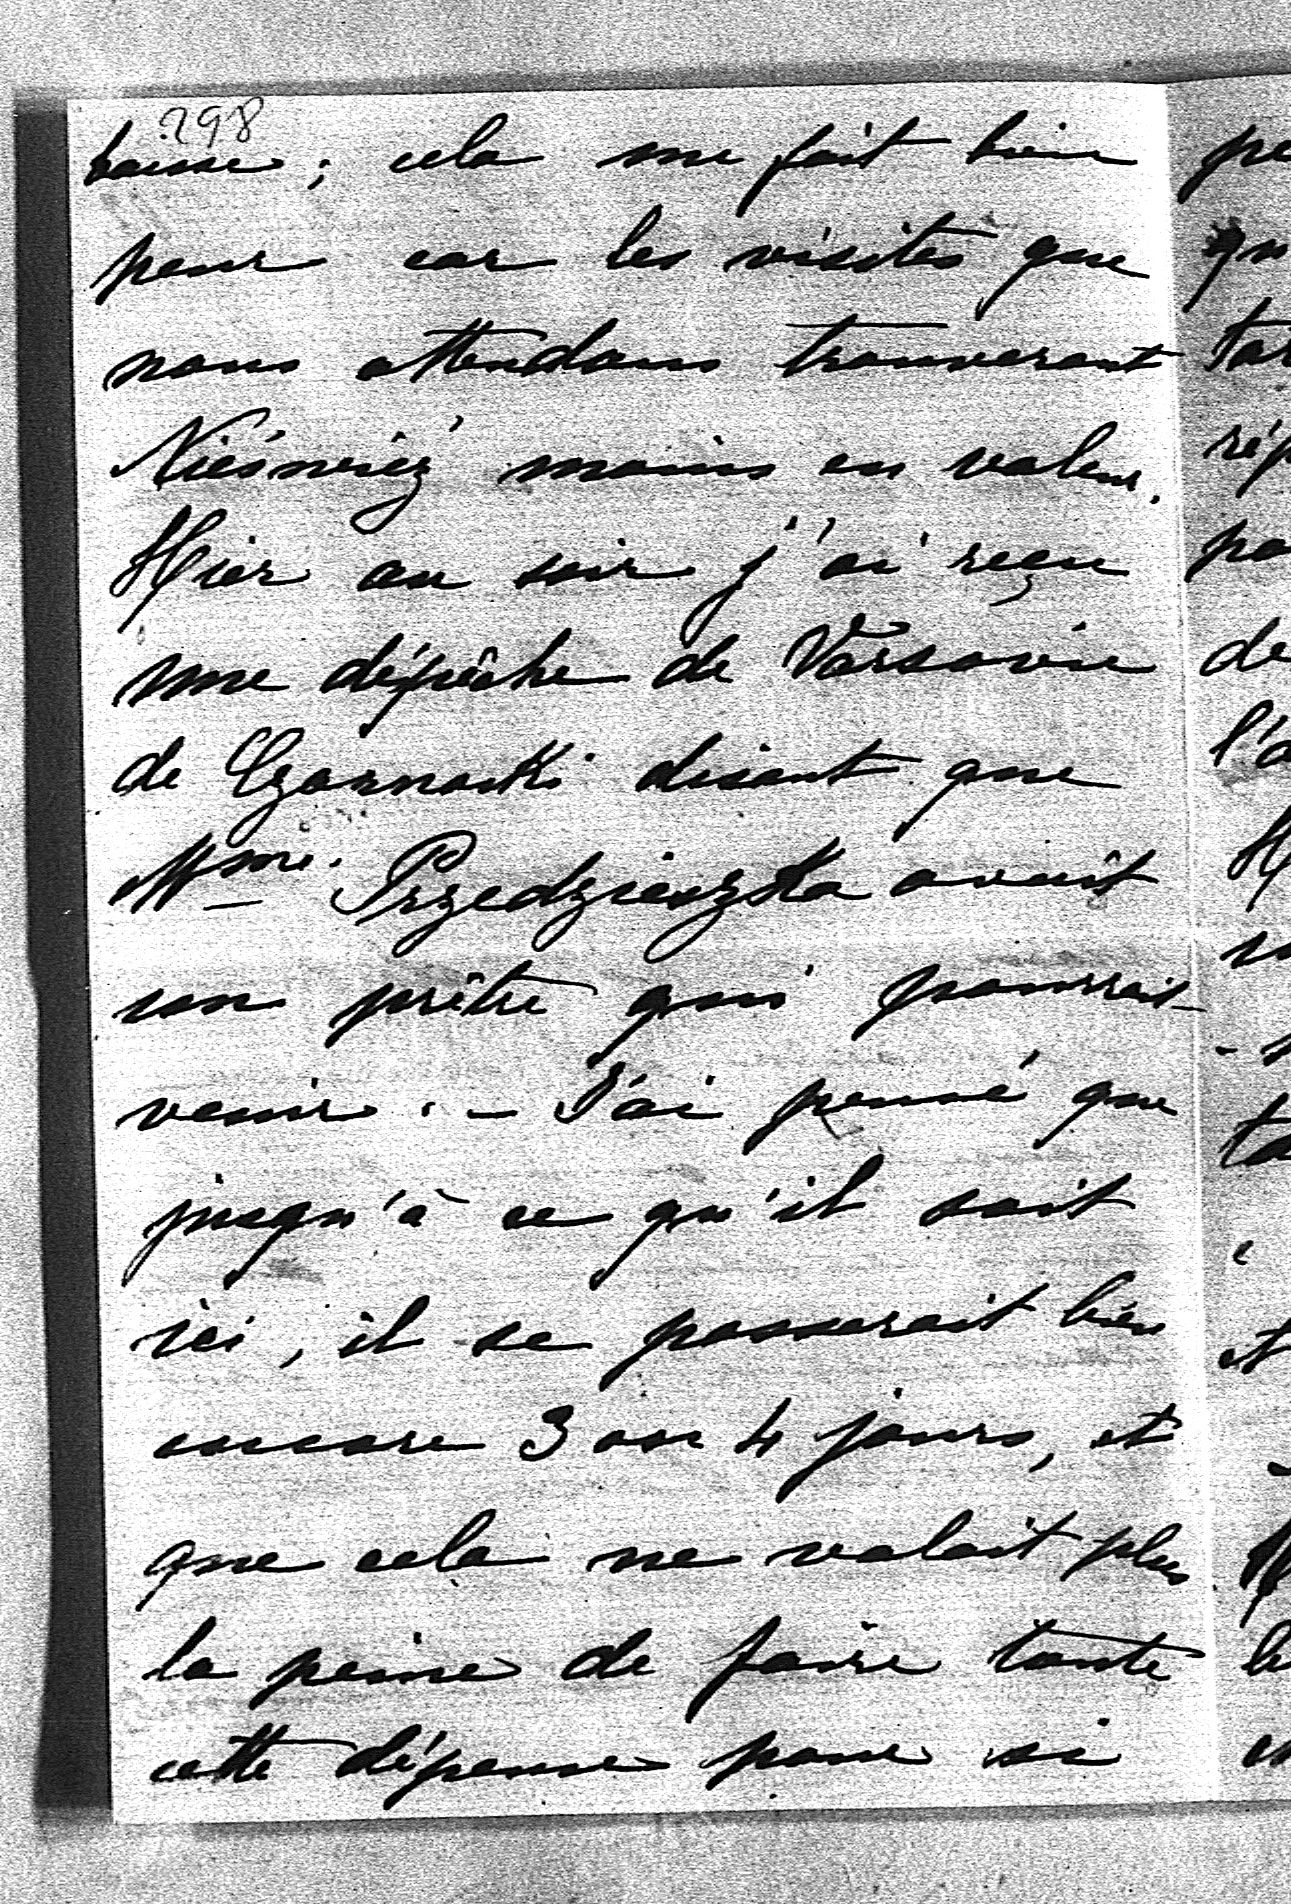 298
baisse ; cela me fait bien
peur car les visites que
nous attendons trouveront
Nieśwież moins en valeur.
Hier au soir j'ai reçu
une dépêche de Varsovie
de Czarnocki disant que
Mme. Przedzieczka avait
un prêtre qui pourrait
venir. – J'ai pensé que
jusqu'à ce qu'il soit
ici, il se passerait bien
encore 3 ou 4 jours, et
que cela ne valait plus
la peine de faire toute
cette dépense pour si